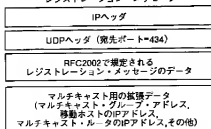 レジストレーション・メッセージ
IPヘッダ
UDPヘッダ (宛先ポート=434)
RFC2002で規定される
レジストレーション・メッセージのデータ
マルチキャスト用の拡張データ
(マルチキャスト・グループ・アドレス,
移動ホストのIPアドレス,
マルチキャスト・ルータのIPアドレス,その他)